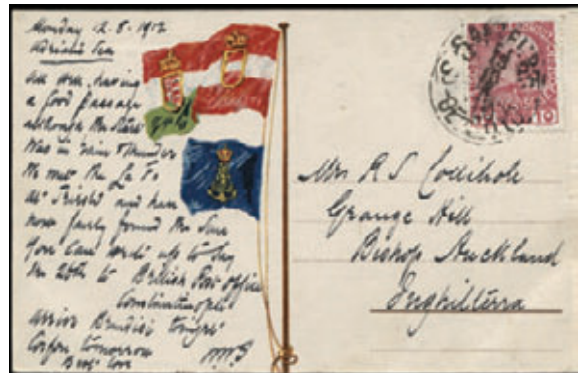 Monday 12.8.1912
Adriatic Sea
All well, having
a good passage
although the start
was in rain & thunder
We met the
at Trieste and have
now fairly found the Sun
You can write up to say
the 20th to British Post Office
Constantinople
arrive Brindisi tonight
Corfou tomorrow
Best love
Mrs R S
Grange Hill
Bishop Auckland
Inghilterra
10